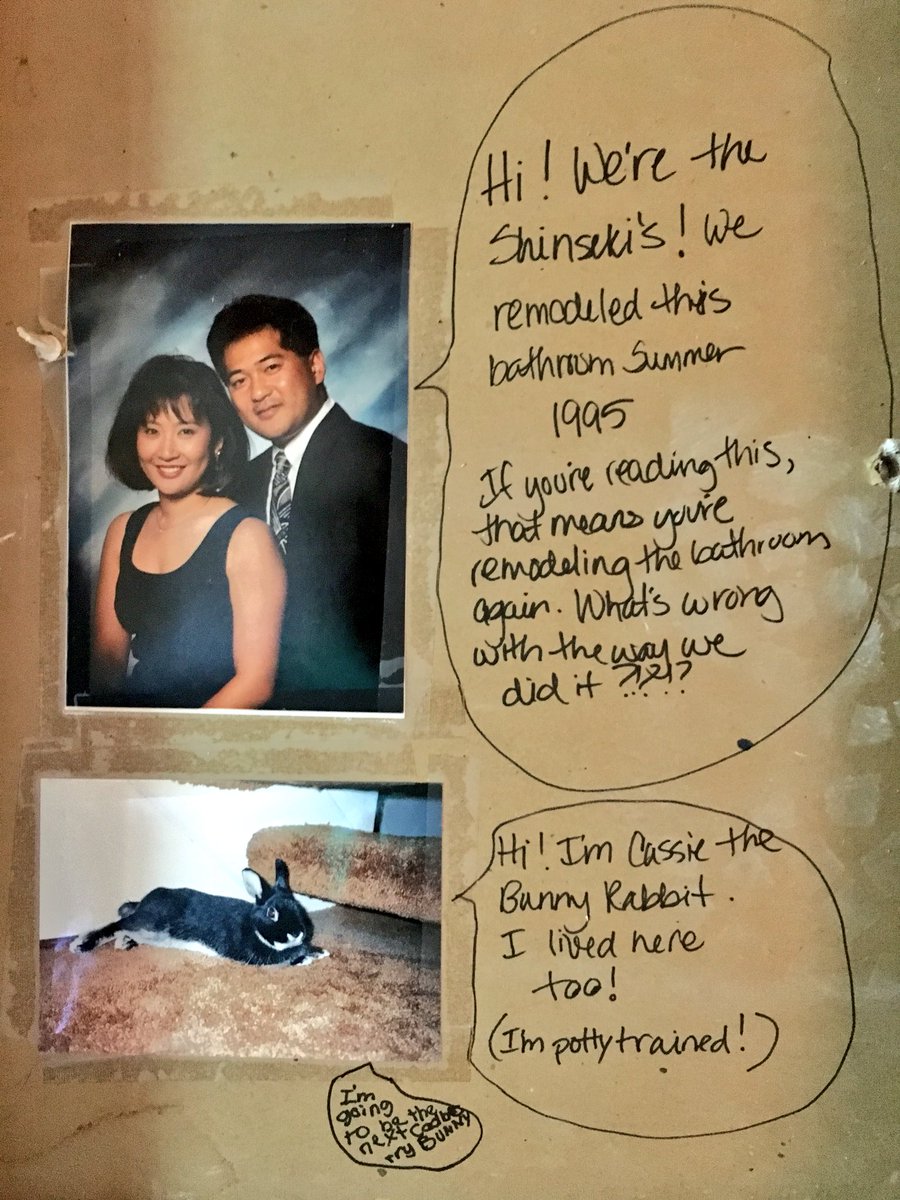 Hi! We're the
Shinseki's! We
remodeled this
bathroom Summer
1995
If you're reading this,
that means you're
remodeling the bathroom
again. What's wrong
with the way we
did it ?!?!?
Hi! I'm Cassie the
Bunny Rabbit.
I lived here
too!
(I'm potty trained!)
I'm
going
to be the
next Cadbu
rry BUNNY